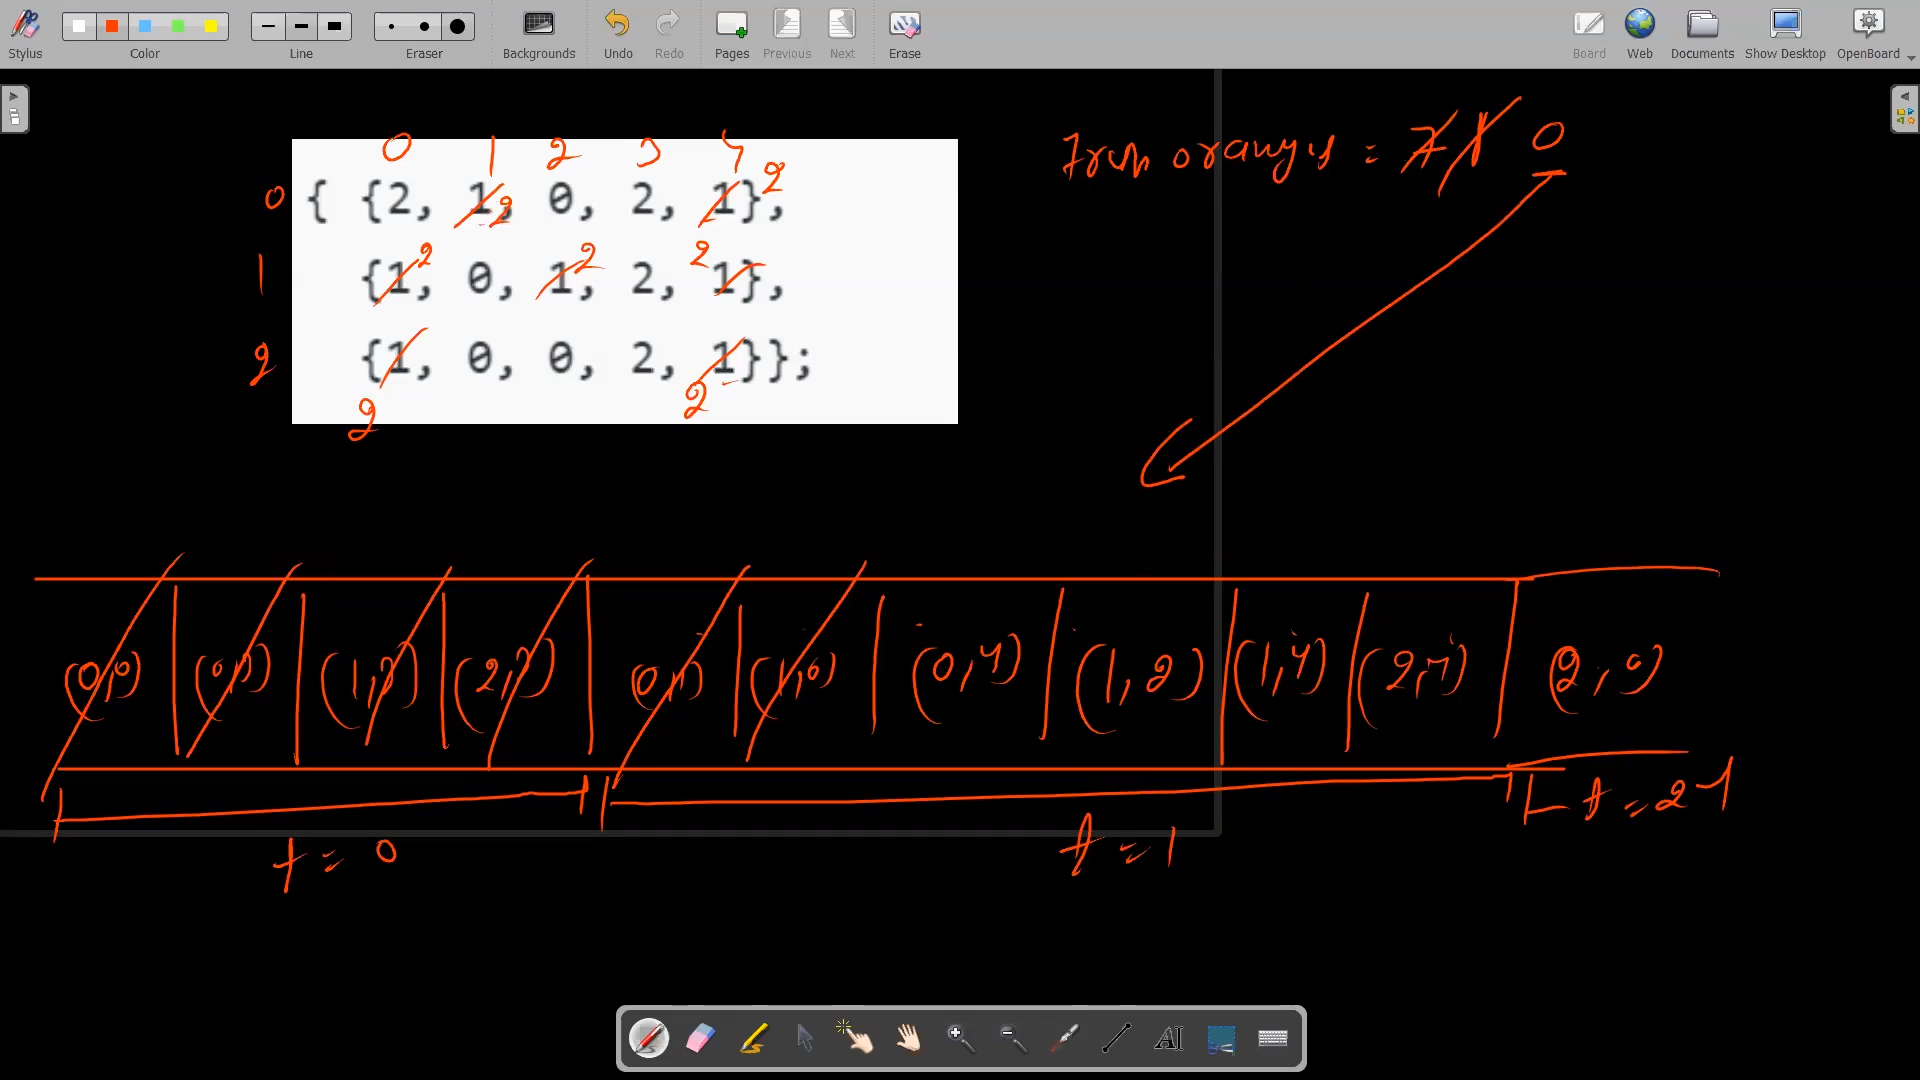 Stylus Color Line Eraser Backgrounds Undo Redo Pages Previous Next Erase Board Web Documents Show Desktop OpenBoard
0 1 2 3 4
0 { {2, 1, 0, 2, 1}, 2 2
1 {1, 0, 1, 2, 1}, 2 2 2
2 {1, 0, 0, 2, 1}}; 2 2
Fresh oranges = 7 1 0
(0,0) (0,3) (1,3) (2,3) (0,1) (1,0) (0,4) (1,2) (1,4) (2,4) (2,0)
t = 0 t = 1 t = 2